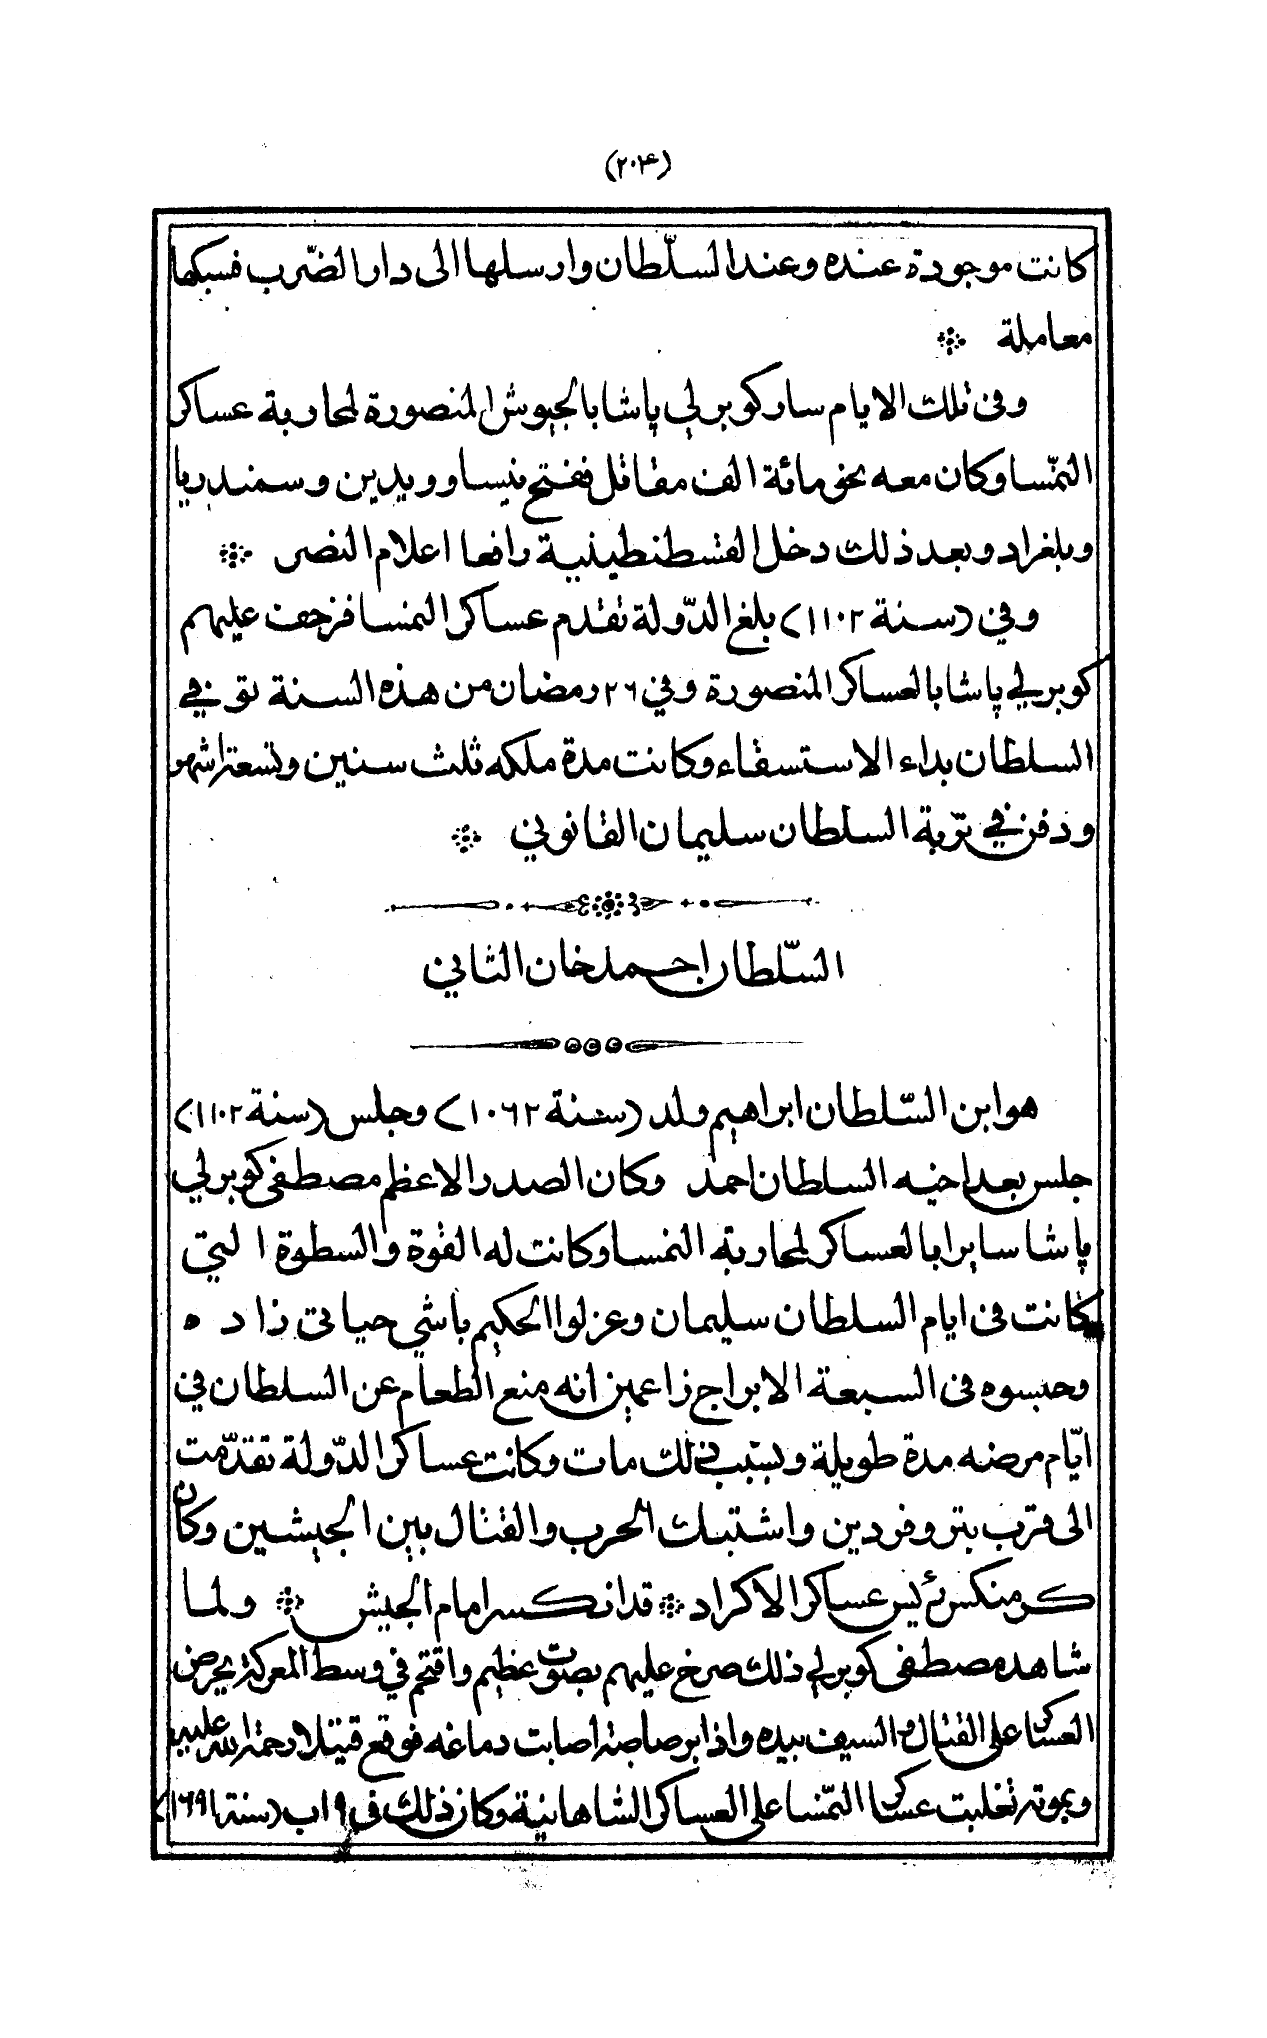 (٢٠٤)
كانت موجودة عنده وعند السلّطان وارسلها الى دار الضّرب فسبكها
معاملة
وفى تلك الايام سار كوبرلي پاشا بالجيوش المنصورة لمحاربة عساكر
النمّسا وكان معه نحو مائة الف مقاتل ففتح نيسا وويدين وسمندريا
وبلغراد وبعد ذلك دخل القسطنطينية رافعا اعلام النصر
وفي (سنة ١١٠٢) بلغ الدّولة تقدم عساكر النمسا فزحف عليهم
كوبرلي پاشا بالعساكر المنصورة وفي ٢٦ رمضان من هذه السنة توفي
السلطان بداء الاستسقاء وكانت مدة ملكه ثلث سنين وتسعة اشهر
ودفن في تربة السلطان سليمان القانوني
السلّطان احمد خان الثاني
هو ابن السّلطان ابراهيم ولد (سنة ١٠٦٢) وجلس (سنة ١١٠٢)
جلس بعد اخيه السلطان احمد وكان الصدر الاعظم مصطفى كوبرلي
پاشا سايرا بالعساكر لمحاربة النمسا وكانت له القوة والسطوة التي
كانت فى ايام السلطان سليمان وعزلوا الحكيم باشي حياتى زاده
وحبسوه فى السبعة الابراج زاعمين انه منع الطعام عن السلطان في
ايّام مرضه مدة طويلة وبسبب ذلك مات وكانت عساكر الدّولة تقدّمت
الى قرب بتروفردين واشتبك الحرب والقتال بين الجيشين وكان
كرمنكس رئيس عساكر الاكراد قد انكسر امام الجيش ولما
شاهد مصطفى كوبرلي ذلك صرخ عليهم بصوت عظيم واقتحم في وسط المعركة يحرض
العساكر على القتال والسيف بيده واذا برصاصة اصابت دماغه فوقع قتيلا رحمة الله عليه
وبموته تغلبت عساكر النمّسا على العساكر الشاهانية وكان ذلك فى ١٩ اب (سنة ١٦٩١)